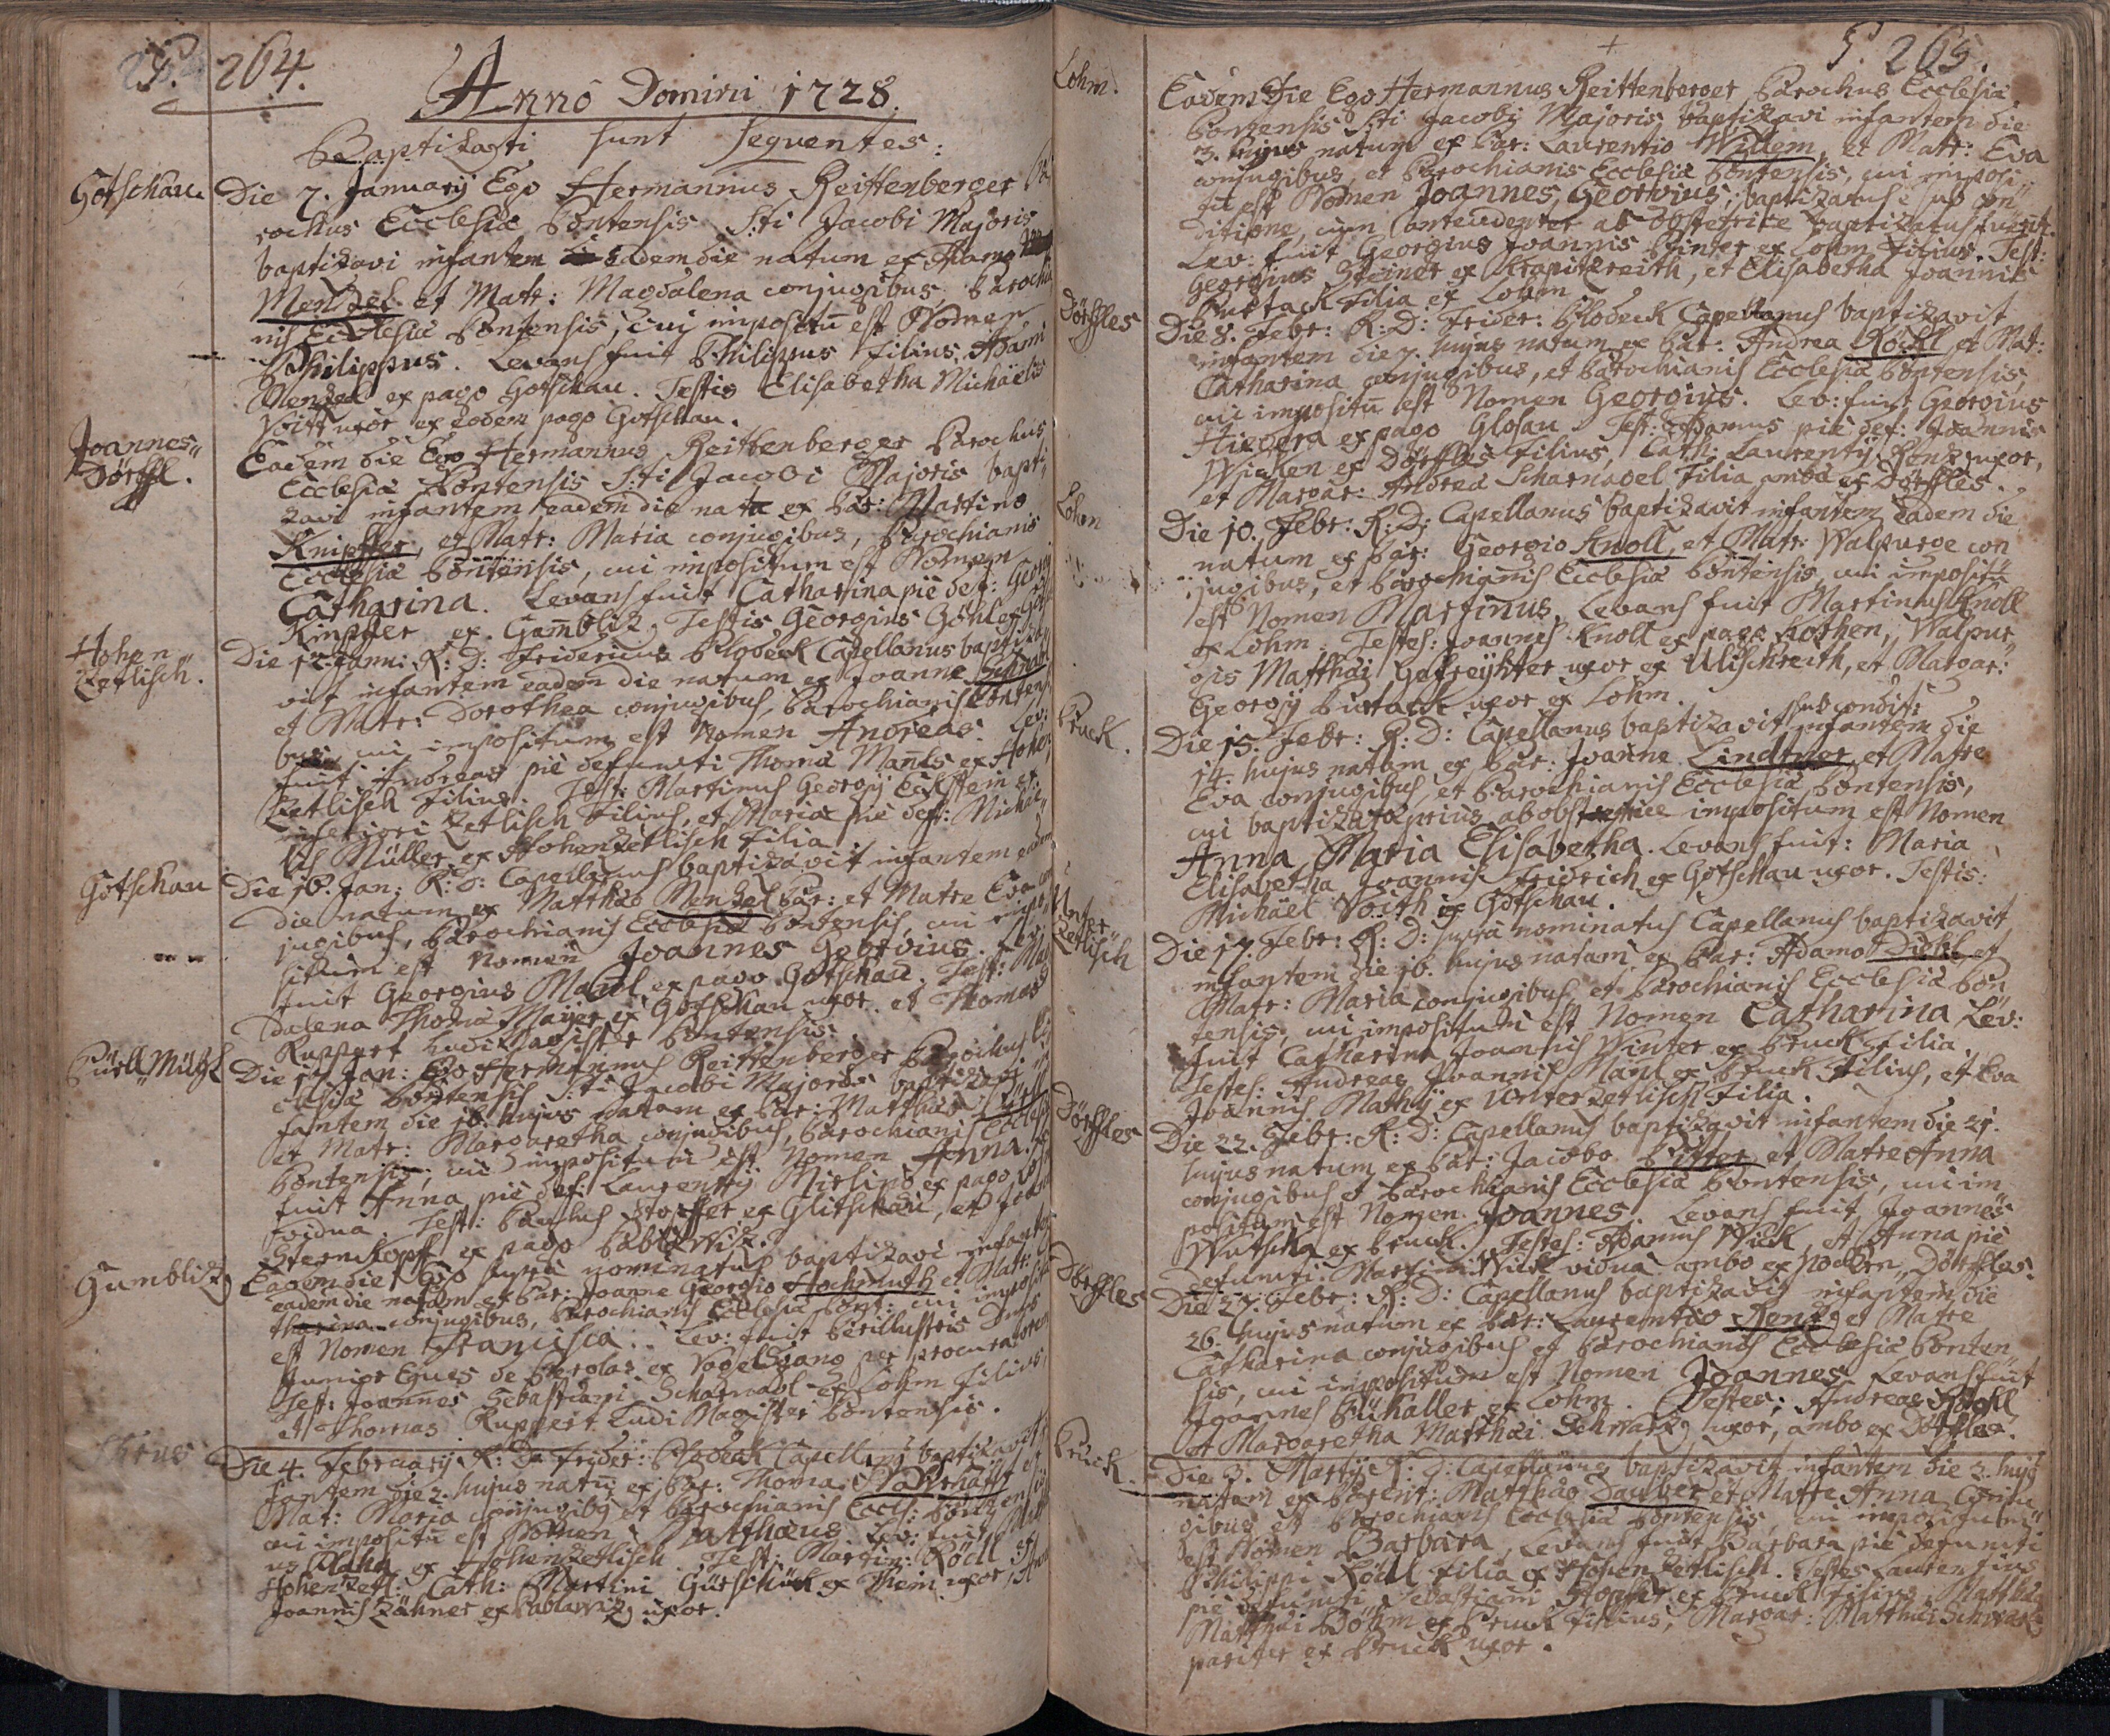 264.
Anno Domini 1728.
Baptizati sunt sequentes:
Gotschau
Die 7. Januarÿ Ego Hermannus Reittenberger Pa
rochus Ecclesiæ Pontensis S:ti Jacobi Majoris
baptizavi infantem eadem die natum ex Adamo
Menzel et Matr: Magdalena conjugibus, Parochia
nis Ecclesiæ Pontensis, cui impositū est Nomen
Philippus. Levans fuit Philippus filius Adami
Menzel ex pago Gotschau. Testis Elisabetha Michaëlis
Voitt uxor ex eodem pago Gotschau.
Joannes"
Dörffl.
Eadem die Ego Hermannus Reittenberger Parochus
Ecclesiæ Pontensis S:ti Jacobi Majoris bapti"
zavi infantem eadem die nata ex Par: Martino
Knipffer, et Matr: Maria conjugibus, Parochianis
Ecclesiæ Pontensis, cui impositum est Nomen
Catharina. Levans fuit Catharina piè def: Georg
Knipffer ex Gamblitz. Testis Georgius Göhl ex
Hohen"
Zetlisch.
Die 12. Janu: R: D: Fridericus Plodeck Capellanus baptiza
vit infantem eadem die natum ex Joanne
et Matr: Dorothea conjugibus, Parochianis Ponten
cui impositum est Nomen Andreas. Lev:
fuit Andreas piè defuncti Thomæ ex Hohen
Zetlisch Filius. Test: Martinus Georgÿ Eckstein ex
inferiori Zetlisch Filius, et Maria piè deft: Michaë"
lis Müller ex Hohenzetlisch Filia.
Gotschau
Die 16. Jan: R: D: Capellanus baptizavit infantem eadem
die natum ex Matthæo Menzel Par: et Matre Eva con
jugibus, Parochianis Ecclesiæ Pontensis, cui impo"
situm est Nomen Joannes Georgius. Lev:
fuit Georgius ex pago Gotschau. Test: Mag
dalena Thomæ Mayer ex Gotschau uxor et Thomas
Ruppert Ludi Magister Pontensis.
Pürll"Mühl
Die Jan: Ego Hermannus Reittenberger Parochus Ec
clesiæ Pontensis S:ti Jacobi Majoris baptizavi in
fantem die 16. hujus natam ex Par: Matthæo
et Matr: Margaretha conjugibus, Parochianis Ecclesiæ
Pontensis, cui impositum est Nomen Anna.
fuit Anna piè def: Laurentÿ ex pago
vidua. Test: Paulus Stopffer ex Glitschau, et
Sternkopff ex pago Pablowitz.
Gumblitz
Eadem die Ego supra nominatus baptizavi infantem
eadem die natam ex Par: Joanne Georgio Hochmuth et Matr:
tharina conjugibus, Parochianis Ecclesiæ Pont: cui imposit
est Nomen Francisca. Lev: fuit Perillustris Dnus
Junior Eques de ex Vogelsang per procuratorem
Test: Joannes Sebastiani Scharnagl ex Lohm filius
et Thomas Ruppert Ludi Magister Pontensis.
Die 4. Februarÿ R: D: Frider: Plodeck Capellanus baptizavit
fantem die 2. hujus natū ex Par: Thoma et
Mat: Maria conjugibus et Parochianis Eccl: Pontensis
cui impositū est Nomen Matthæus. Lev: fuit
ex Hohenzetlisch. Test: Martin: Rödl ex
Hohenzetl: Cath: Martini ex Thein uxor,
Joannis Zähner ex Pablowitz uxor.
P. 265.
Lohm.
Eadem Die Ego Hermannus Reittenberger Parochus Ecclesiæ
Pontensis S:ti Jacobi Majoris baptizavi infantem die
3. hujus natum ex Par: Laurentio Willem, et Matr: Eva
conjugibus, et Parochianis Ecclesiæ Pontensis, cui imposi
tū est Nomen Joannes Georgius; baptizatus sub con"
ditione, cum antecedenter ab obstetrice baptizatus fuerit.
Lev: fuit Georgius Joannis Pinter ex Lohm filius. Test:
Georgius Steiner ex Krapitzreith, et Elisabetha Joannis
Burtack filia ex Lohm
Dörffles
Die 8. Febr: R: D: Frider: Plodeck Capellanus baptizavit
infantem die 7. hujus natum ex Par: Andrea Röckl et Mat:
Catharina conjugibus, et Parochianis Ecclesiæ Pontensis,
cui impositū est Nomen Georgius. Lev: fuit Georgius
ex pago Glosau. Test: Adamus piè def: Joannis
ex Dörffles Filius, Cath: Laurentÿ Renz uxor,
et Margar: Andreæ Scharnagel Filia ambæ ex Dörffles.
Lohm
Die 10. Febr: R: D: Capellanus baptizavit infantem eadem die
natum ex Par: Georgio Knoll, et Matr: Walpurge con
jugibus, et Parochianis Ecclesiæ Pontensis, cui impositū
est Nomen Martinus. Levans fuit Martinus Knoll
ex Lohm. Testes: Joannes Knoll ex pago, Walpur"
gis Matthæi Gefreÿhter uxor ex Ulischreith, et Margar:
Georgÿ Burtack uxor ex Lohm.
Pruck.
sub condit:
Die 15. Febr: R: D: Capellanus baptizavit infantem die
14. hujus natam ex Par: Joanne Lindtner et Matre
Eva conjugibus, et Parochianis Ecclesiæ Pontensis,
cui baptizatæ prius ab obstetrice impositum est Nomen
Anna Maria Elisabetha. Levans fuit: Maria
Elisabetha Joannis Fridrich ex Gotschau uxor. Testis:
Michäel Voith ex Gotschau.
Unter"
Zetlisch
Die 17. Febr: R: D: supra nominatus Capellanus baptizavit
infantem die 16. hujus natam ex Par: Adamo Dickl et
Matr: Maria conjugibus, et Parochianis Ecclesiæ Pon
tensis, cui impositum est Nomen Catharina Lev:
fuit Catharina Joannis Winter ex Pruck Filia.
Testes: Andreas Joannis Mayl ex Pruck Filius, et Eva
Joannis Mathÿ ex Unterzetlisch Filia.
Dörffles
Die 22. Febr: R: D: Capellanus baptizavit infantem die 21.
hujus natum ex Par: Jacobo Pütter et Matre Anna
conjugibus et Parochianis Ecclesiæ Pontensis, cui im
positum est Nomen Joannes. Levans fuit Joannes
Wutschka ex Pruck. Testes: Adamus Wick, et Anna piè
defuncti Martini Wick vidua ambo ex Dörffles.
Dörffles
Die 27. Febr: R: D: Capellanus baptizavit infantem die
26. hujus natum ex Par: Laurentio Renz et Matre
Catharina conjugibus et Parochianis Ecclesiæ Ponten
sis, cui impositum est Nomen Joannes Levans fuit
Joannes Pühaller ex Lohm. Testes: Andreas Röckll
et Margaretha Matthæi Schwartz uxor, ambo ex Dörffles.
Pruck.
Die 3. Martÿ R: D: Capellanus baptizavit infantem die 2. hujus
natam ex Parent: Matthæo Dauber et Matre Anna Conju
gibus et Parochianis Ecclesiæ Pontensis, cui impositum
est Nomen Barbara, Levans fuit Barbara piè defuncti
Philippi Rödl Filia ex Hohenzetlisch. Testes Laurentius
piè defuncti Sebastiani Stopffer ex Pruck filius, Matthæus
Matthæi Böhm ex Pruck Filius, Margar: Matthæi Schwartz
pariter ex Pruck uxor.